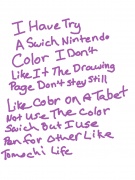 I Have Try
A Swich Nintendo
Color I Don't
Like It The Drawing
Page Don't stey Still
Like Cobr on A Tabet
Not Use The Color
Swich But I Use
Pen for Other Like
Tomochi Life